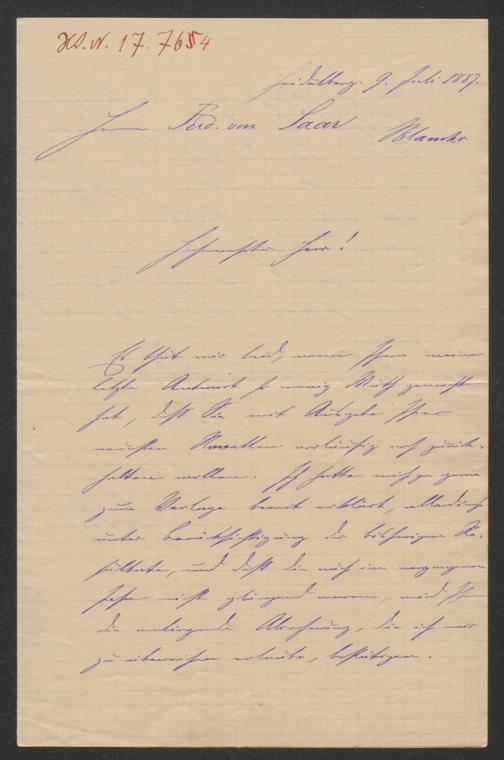 H.I.N. 17.7654
Heidelberg. 9. Juli 1887.
Herrn Ferd. von Saar
Blansko
Hochverehrter Herr!
Es thut mir leid, wenn Ihnen meine
letzte Antwort so wenig Muth gemacht
hat, daß Sie mit Ausgabe Ihrer
neuesten Novellen vorläufig noch zurück-
halten wollen. Ich hatte mich ja gern
zum Verlage bereit erklärt, allerdings
unter Berücksichtigung der bisherigen Re-
sultate, und daß die auch im vergangenen
Jahre nicht glänzend waren, wird Ihnen
die anliegende Abrechnung, die ich mir
zu überreichen erlaube, bestätigen.